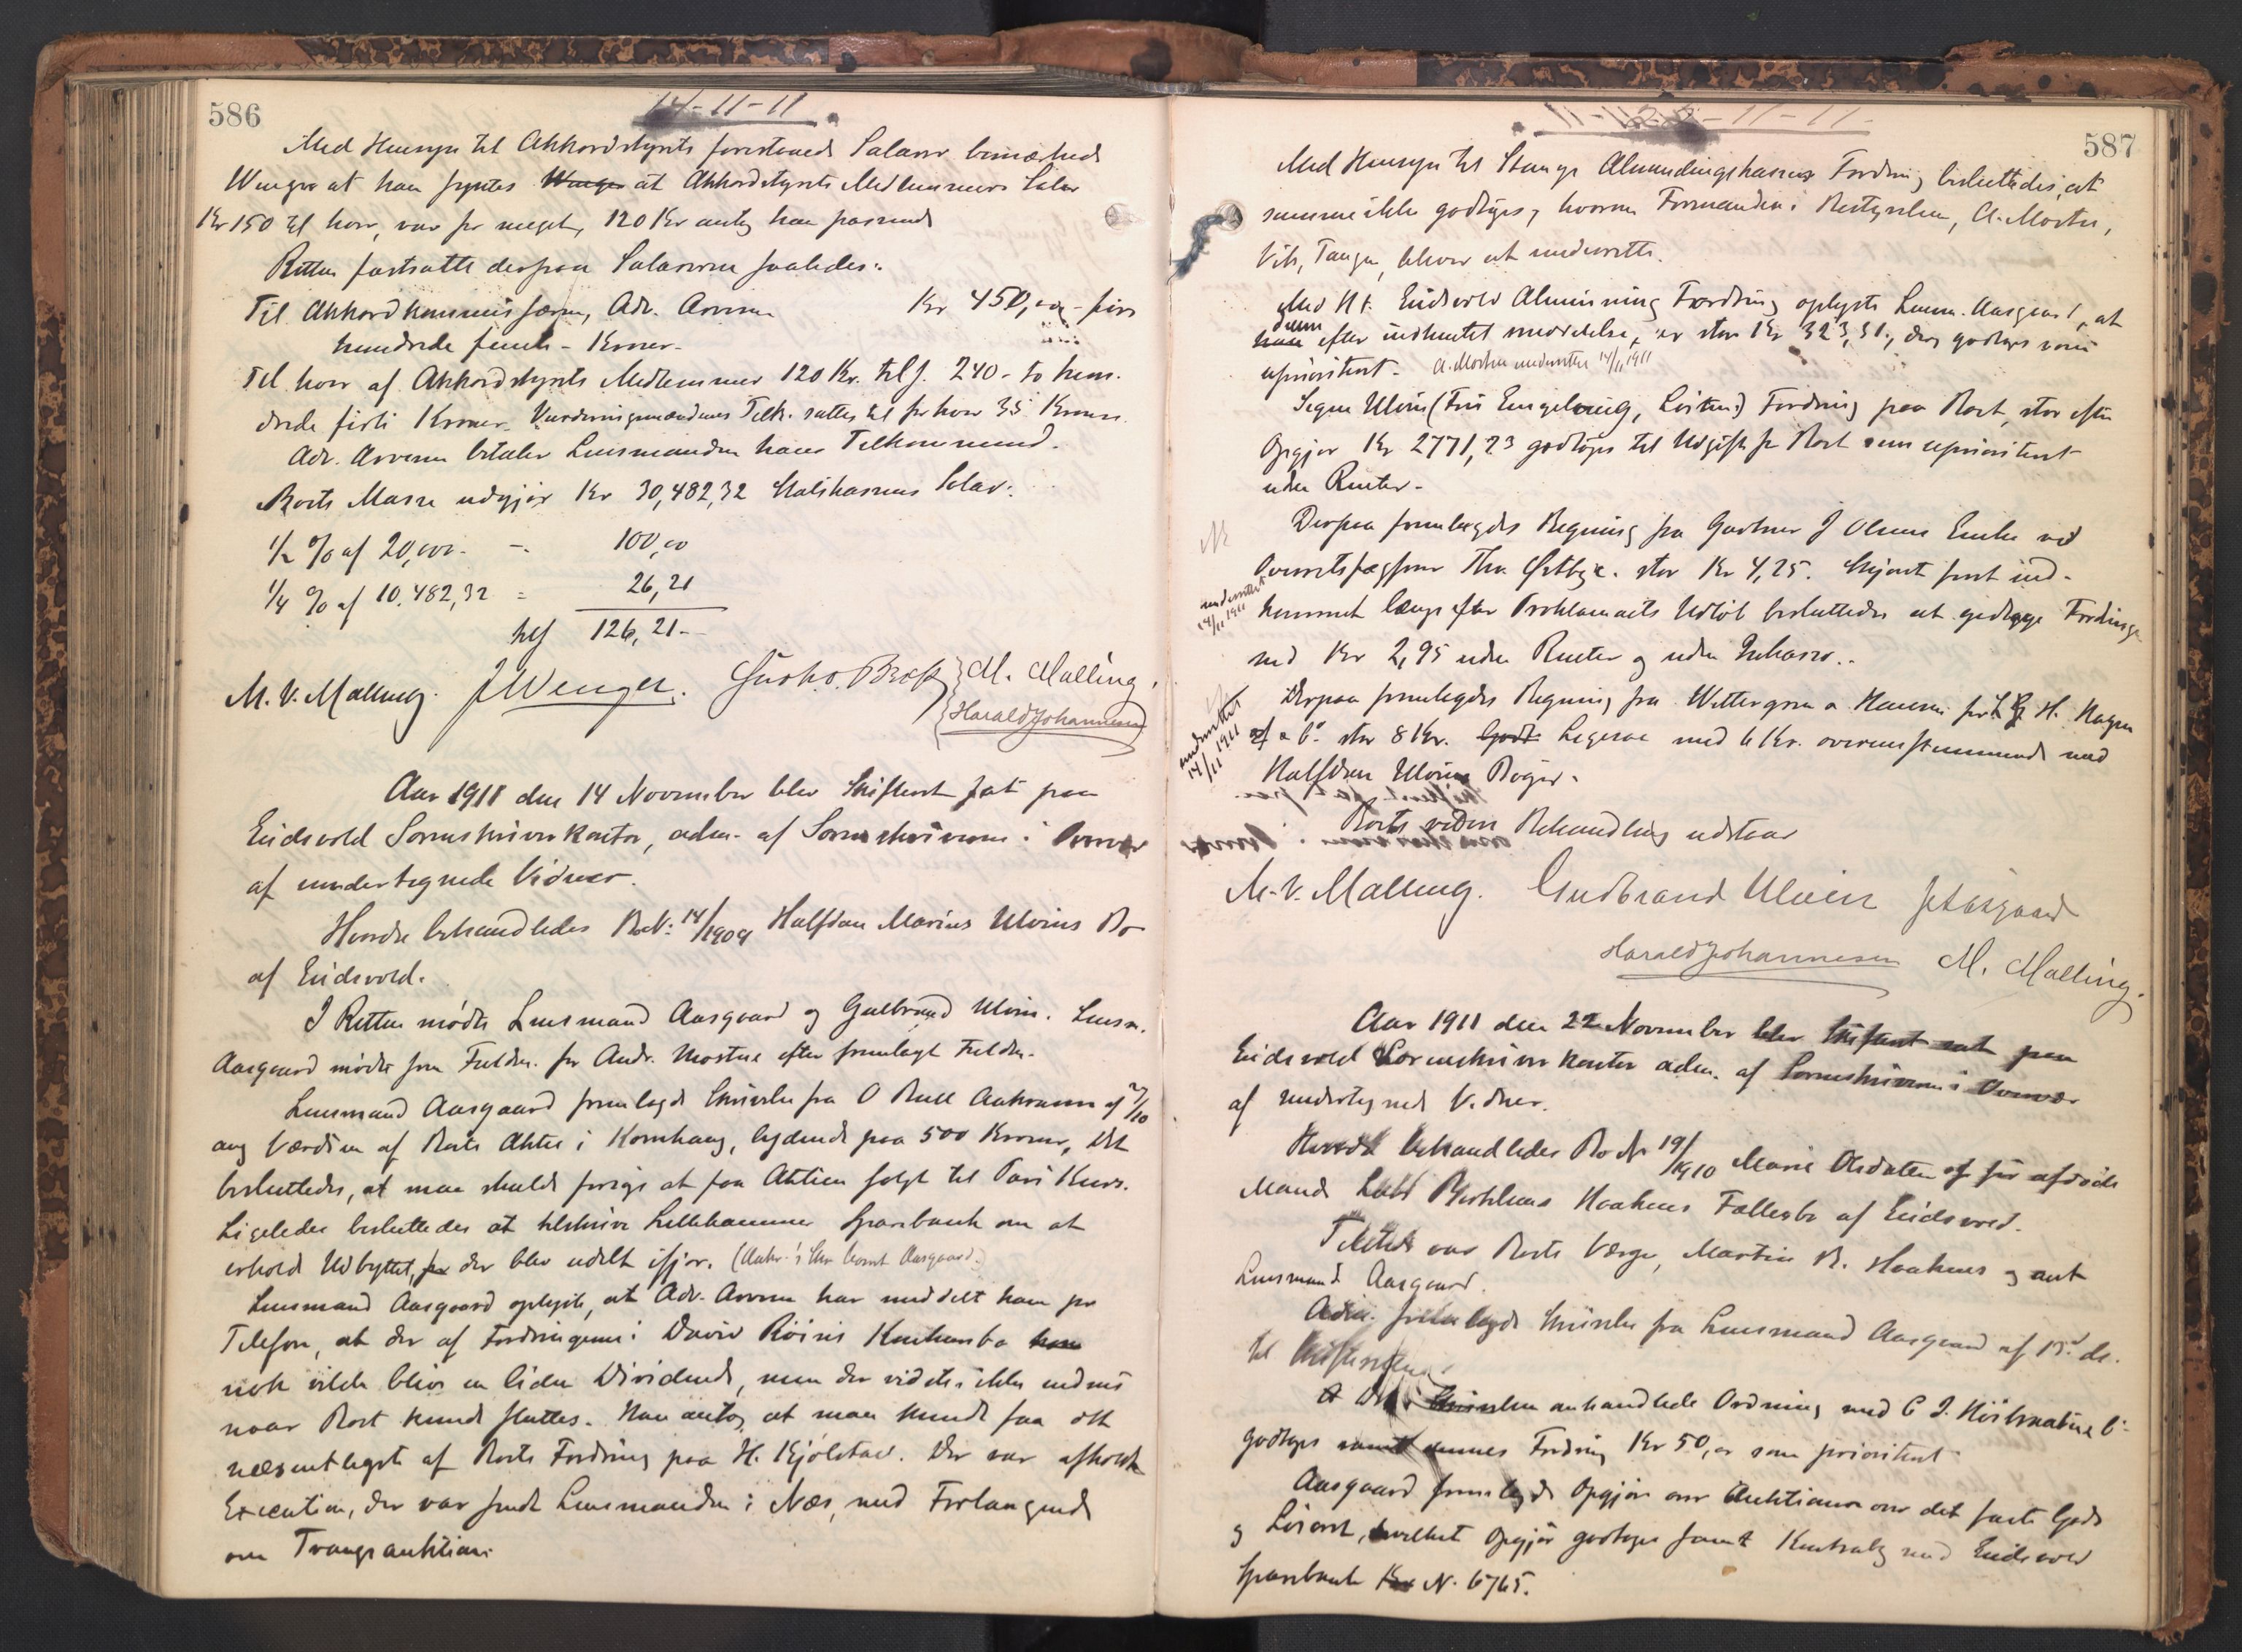 586
14-11-11
Med Hensyn til Akkordstyrets forestaaende Salarer bemærkede
Wenger at han syntes Wenger at Akkordstyrets Medlemmers Salær
Kr 150 til hver, var for meget, 120 Kr antog han passende
Retten fastsatte derpaa Salarerne saaledes:
Til Akkordkommissæren, Adv. Arnesen Kr 450,00 - fire
hundrede femti - Kroner.
Til hver af Akkordstyrets Medlemmer 120 Kr. tils. 240 - to hun-
drede firti Kroner. Vurderingsmændenes Tilk. sattes til for hver 35 Kroner.
Adv. Arnesen betaler Lensmanden hans Tilkommende.
Boets Masse udgjør Kr 30,482,32 Statskassens Salær:
1/2 % af 20,000. - 100,00
1/4 % af 10.482,32 = 26,21
tils 126,21 -
M. V. Malling. J Wenger. M. Malling.
Harald Johannesen
Aar 1911 den 14 November blev Skifteret sat paa
Eidsvold Sorenskriverkontor, adm. af Sorenskriveren i Overvær
af undertegnede Vidner.
Hvorda behandledes Bo N: 14/1909 Halfdan Marius Ulvins Bo
af Eidsvold.
I Retten mødte Lensmand Aasgaard og Gulbrand Ulvin. Lensm.
Aasgaard mødte som Fuldm. for Andr. Mostue efter fremlagt Fuldm.
Lensmand Aasgaard fremlagde Skrivelse fra O Bull Aakrann af 7/10
ang Værdien af Boets Aktie i Kornhaug, lydende paa 500 Kroner, Det
besluttedes, at man skulde forsøge at faa Aktien solgt til Pari Kurs.
Ligeledes besluttedes at tilskrive Lillehammer Sparebank om at
erholde Udbyttet, der blev udelt ifjor. (Aakr.'s Skr. Aasgaard.)
Lensmand Aasgaard oplyste, at Adv. Arnesen har meddelt ham pr
Telefon, at der af Fordringerne i David Röisis Konkursbo
nok vilde blive en liden Dividende, men der vidstes ikke endnu
naar Boet kunde sluttes. Han antog at man kunde faa det
væsentligste af Boets Fordring paa H. Kjölstad. Der var afholdt
Execution, der var sendt Lensmanden i Næs, med Forlangende
om Tvangsauktion.
587
Med Hensyn til Stange Almindingskasses Fordring besluttedes, at
samme ikke godtages, hvorom Formanden i Bestyrelsen, A. Morten,
Vik, Tangen, bliver at underrette.
Med H. t. Eidsvold Alminning Fordring oplyste Lensm. Aasgaard, at
denne efter indhentet meddelelse, er stor Kr 323,31, der godtages som
uprioritert. A. Morten underrettet 14/11 1911
Signe Ulvin (Fru Engelaug, Løiten) Fordring paa Boet, stor efter
Opgjør Kr 2771,23 godtages til Udgift for Boet som uprioritert
uden Renter.
Derpaa fremlagdes Regning fra Gartner J Olsens Enke ved
Overretssagfører Thv. Østbye. stor Kr 4,25. Skjønt først ind-
underrettet 14/11 1911
kommet længe efter Proklamaets Udløb besluttedes at godtage Fordringen
med Kr 2,95 uden Renter og uden Inkasso.
Derpaa fremlagdes Regning fra Wettergreen & Hansen for H. Hagen
underrettet 14/11 1911
stor 8 Kr. Ligesaa med 6 Kr. overensstemmende med
Halfdan Ulvins Bøger.
Boets videre Behandling udstaar
M. V. Malling. Gudbrand Ulvin Aasgaard
Harald Johannesen M. Malling.
Aar 1911 den 22 November blev Skifteret sat paa
Eidsvold Sorenskriverkontor adm. af Sorenskriveren i Overvær
af undertegnede Vidner.
Hvorda behandledes Bo N 19/1910 Marie Olsdatter og før afdøde
Mands Haakens Fællesbo af Eidsvold.
Tilstede var Boets Værge, Martin B. Haakens og
Lensmand Aasgaard.
Adm. fremlagde Skrivelse fra Lensmand Aasgaard af 13. ds.
til Skifteretten
Den i Skrivelsen omhandlede Ordning med
godtages samt dennes Fordring Kr 50,00 som prioritert
Aasgaard fremlagde Opgjør over Auktionen over det faste Gods
og Løsøret, hvilket Opgjør godtages samt Kontrabog med Eidsvold
Sparebank N. 6765.